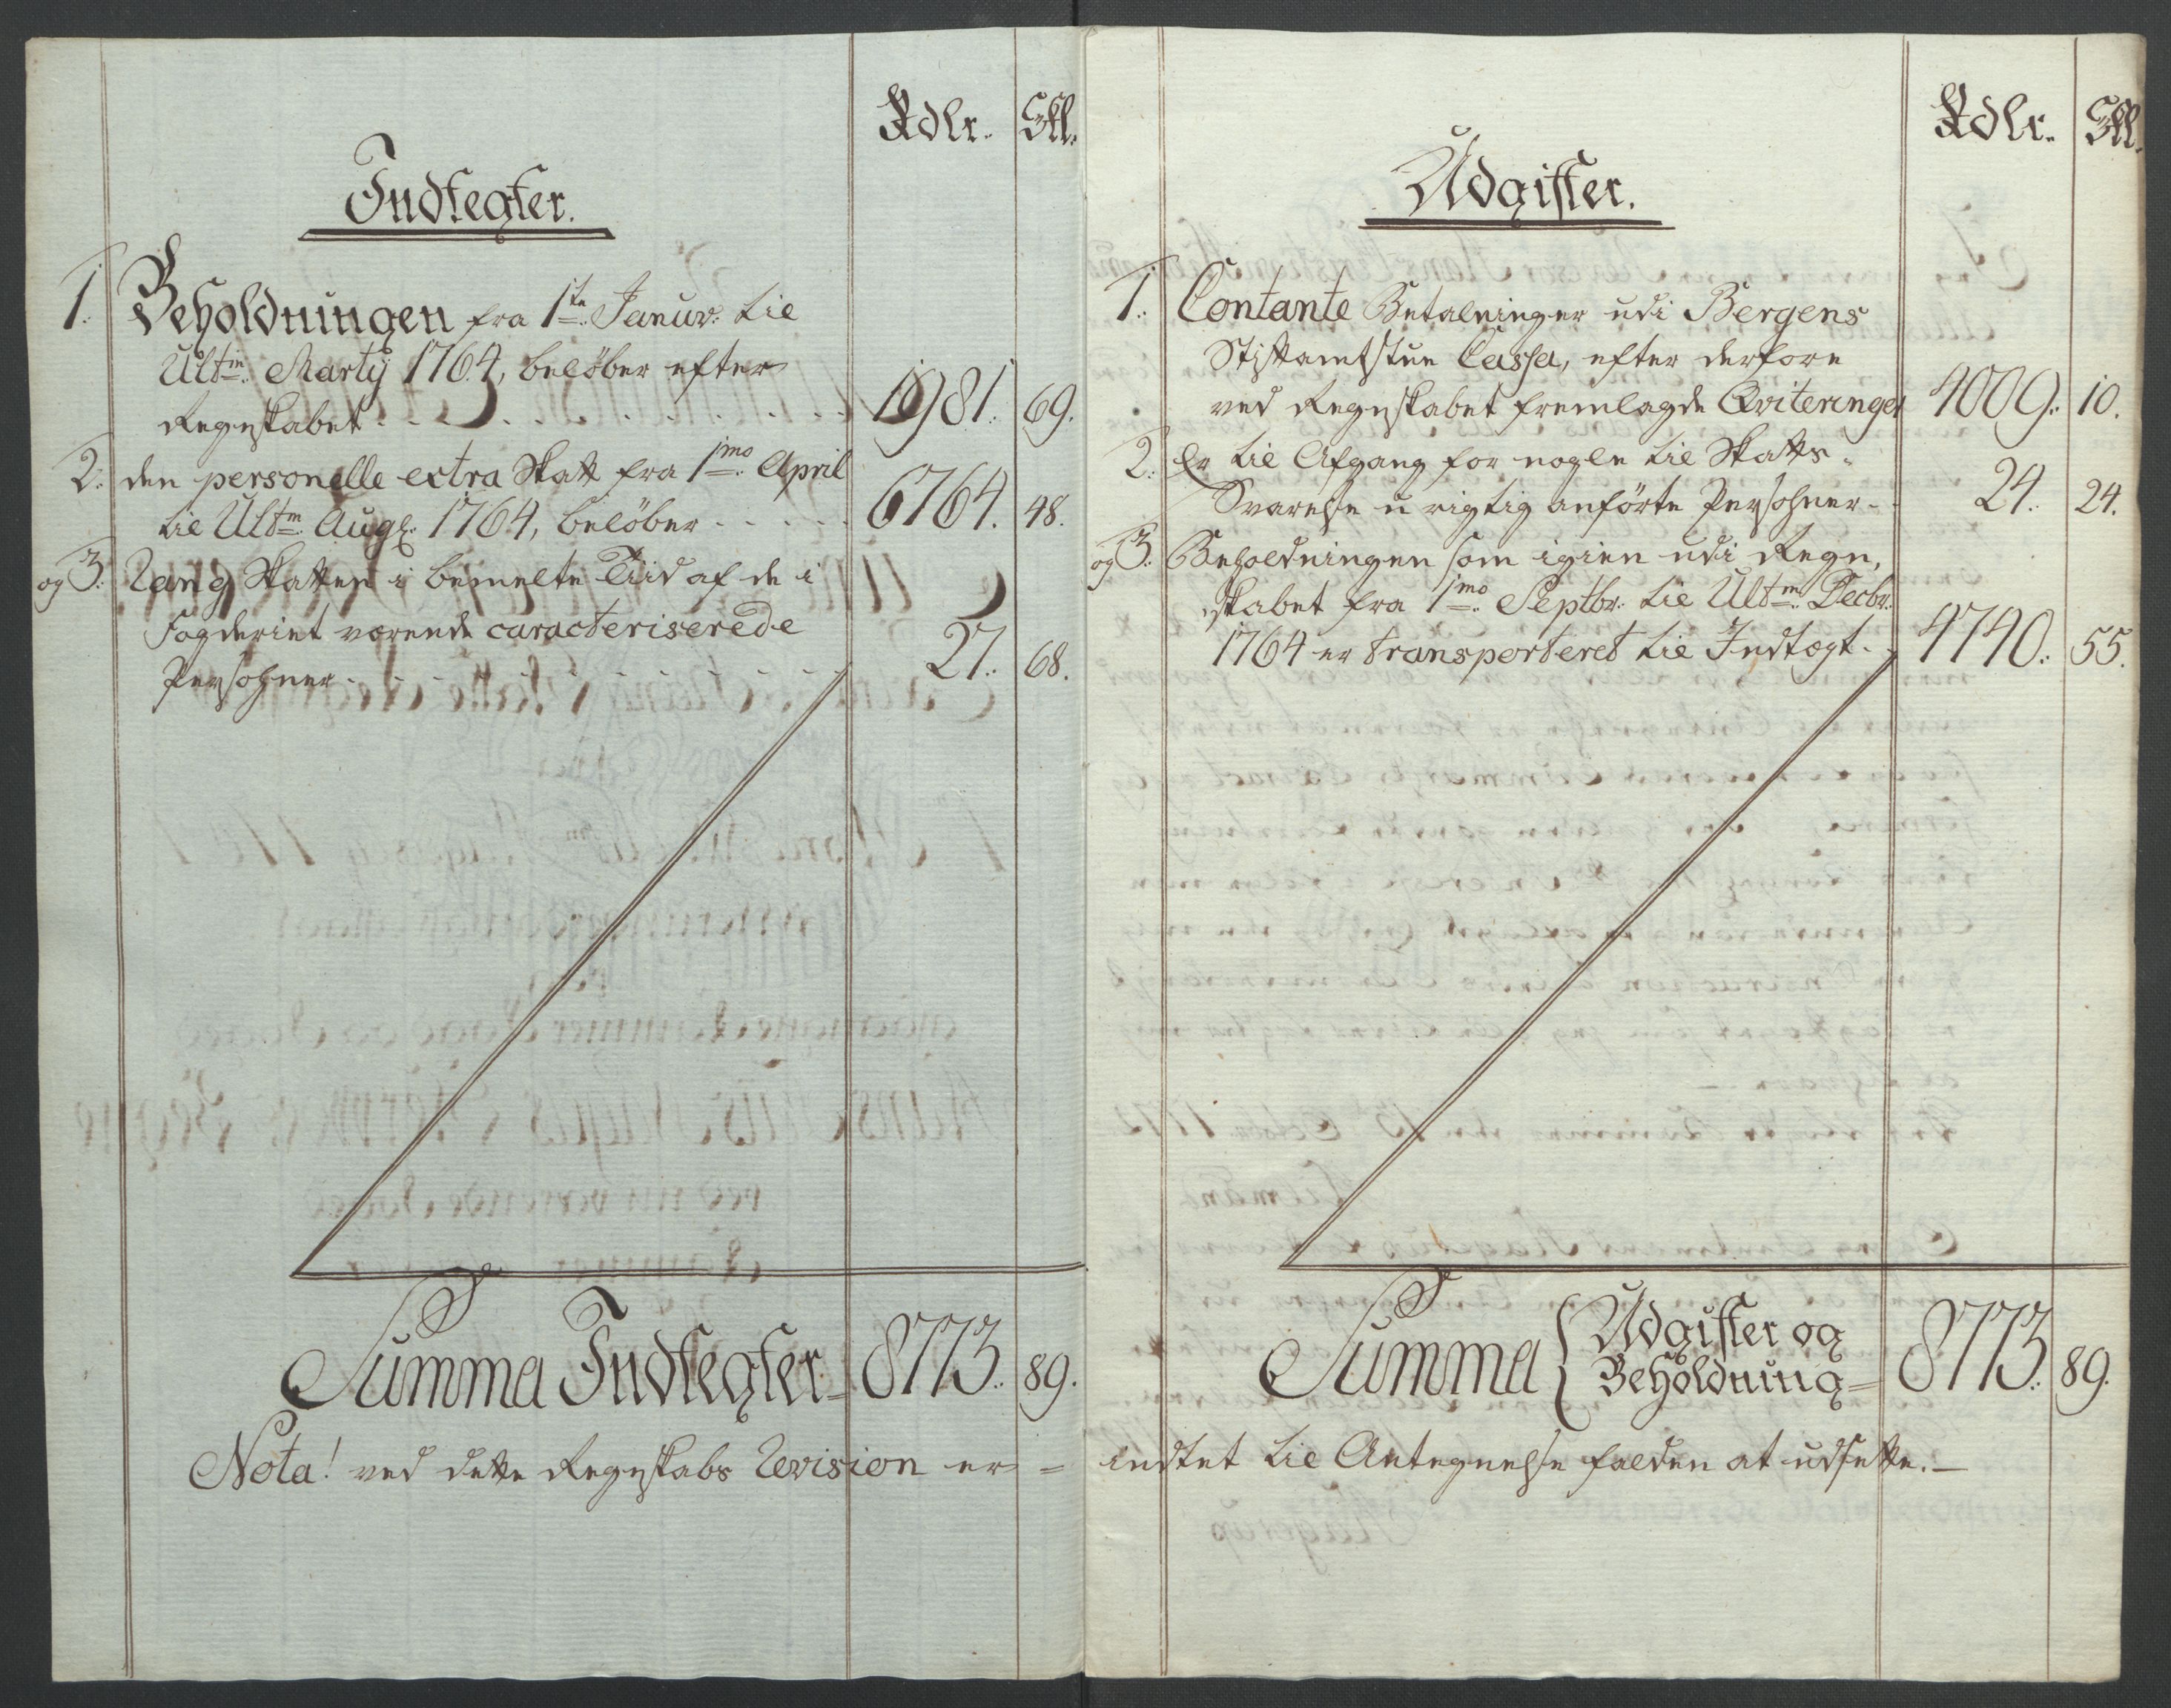 Rdlr. Skl.
Indtegter.
1. Beholdningen fra 1te Januv: til
Ultm Martÿ 1764, beløber efter
Regnskabet. . . 1981. 69.
2. den personelle extra Skatt fra 1mo April
til Ultm Aug: 1764, beløber . . . 6764. 48.
og 3. Rang Skatten i bemelte Tiid af de i
Fogderiet værende caracteriserede
Persohner . . . 27. 68.
Summa Indtegter 8773. 89.
Nota! ved dette Regnskabs Revision er =
Rdlr. Skl.
Udgifter.
1. Contante Betalninger udi Bergens
Stiftamtstue Cassa, efter derfore
ved Regnskabet fremlagde Qviteringer 4009. 10.
2. Er til Afgang for nogle til Skatts-
Svarelse u rigtig anførte Persohner . . 24. 24.
og 3. Beholdningen som igien udi Regn,
skabet fra 1mo Septbr: til Ultm Decbr:
1764 er transporteret til Indtægt . . 4740. 55.
Summa { Udgifter og
Beholdning = 8773. 89.
indtet til Antegnelse falden at udsette. —